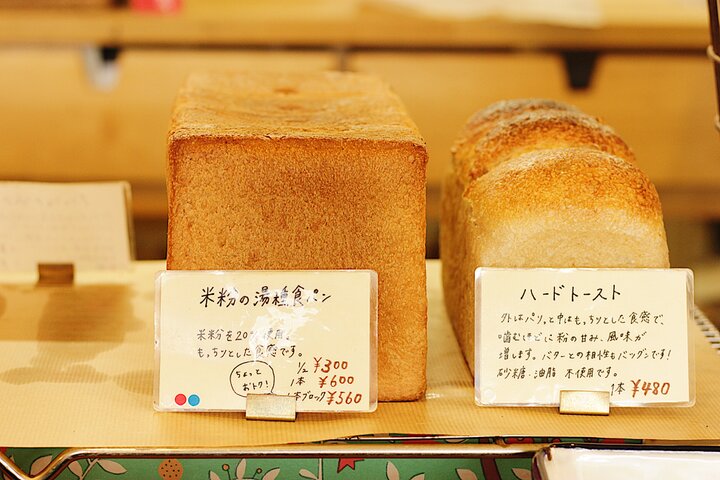 米粉の湯種食パン
米粉を20%使用、
もっちりとした食感です。
ちょっと
おトク!
1/2 ¥300
1本 ¥600
1本ブロック ¥560
ハードトースト
外はパリッと中はもっちりとした食感で、
噛むほどに粉の甘み、風味が
増します。バターとの相性もバツグンです!
砂糖・油脂 不使用です。
1本 ¥480